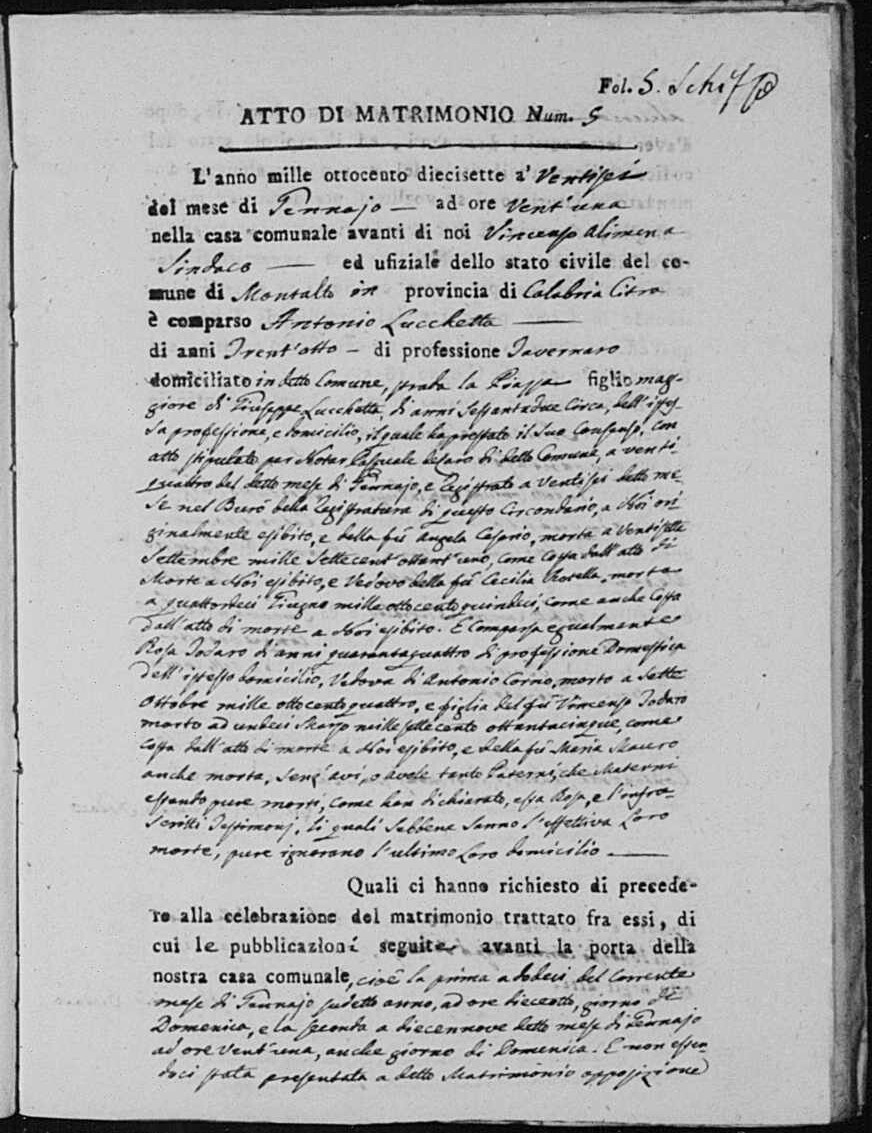 Fol. 5.
ATTO DI MATRIMONIO Num. 5
L'anno mille ottocento diecisette a' Ventisei
del mese di Gennajo — ad ore Vent'una
nella casa comunale avanti di noi Vincenzo Alimena
Sindaco — ed ufiziale dello stato civile del co-
mune di Montalto in provincia di Calabria Citra
è comparso Antonio Lucchetta —
di anni Trent'otto — di professione Tavernaro
domiciliato in detto Comune, strada la Piazza figlio mag-
giore di Giuseppe Lucchetta, di anni Sessantadue Circa, dell'istes-
sa professione, e domicilio, il quale ha prestato il Suo Consenso, con
atto stipulato per Notar Pasquale di detto Comune, a venti
quattro del detto mese di Gennajo, e Registrato a Ventisei detto me-
se nel Burò della Registratura di questo Circondario, a Noi ori-
ginalmente esibito, e della fù Angela Cesario, morta a Ventisette
Settembre mille Settecent'ottant'uno, come Costa dall'atto di
Morte a Noi esibito, e Vedovo della fù Cecilia morta
a quattordeci Giugno mille ottocento quindeci, come anche Costa
dall'atto di morte a Noi esibito. E Comparsa egualmente
Rosa Todaro di anni quarantaquattro di professione Domestica
dell'istesso domicilio, Vedova di Antonio morto a Sette
Ottobre mille ottocento quattro, e figlia del fù Vincenzo Todaro
morto ad undeci Marzo mille settecento ottantacinque, come
Costa dall'atto di morte a Noi esibito, e della fù Maria Mauro
anche morta, Senz'avi, o avole tanto Paterni, che Materni
essendo pure morti, come han dichiarato, essa Rosa, e l'infra-
scritti Testimonj, li quali Sebbene Sanno l'effettiva Loro
morte, pure ignorano l'ultimo Loro domicilio —
Quali ci hanno richiesto di precede-
re alla celebrazione del matrimonio trattato fra essi, di
cui le pubblicazioni seguite avanti la porta della
nostra casa comunale, cioè la prima a dodeci del Corrente
mese di Gennajo sudetto anno, ad ore dieceotto, giorno di
Domenica, e la seconda a diecennove detto mese di Gennajo
ad ore Vent'una, anche giorno di Domenica. E non essen-
doci stata presentata a detto Matrimonio opposizione